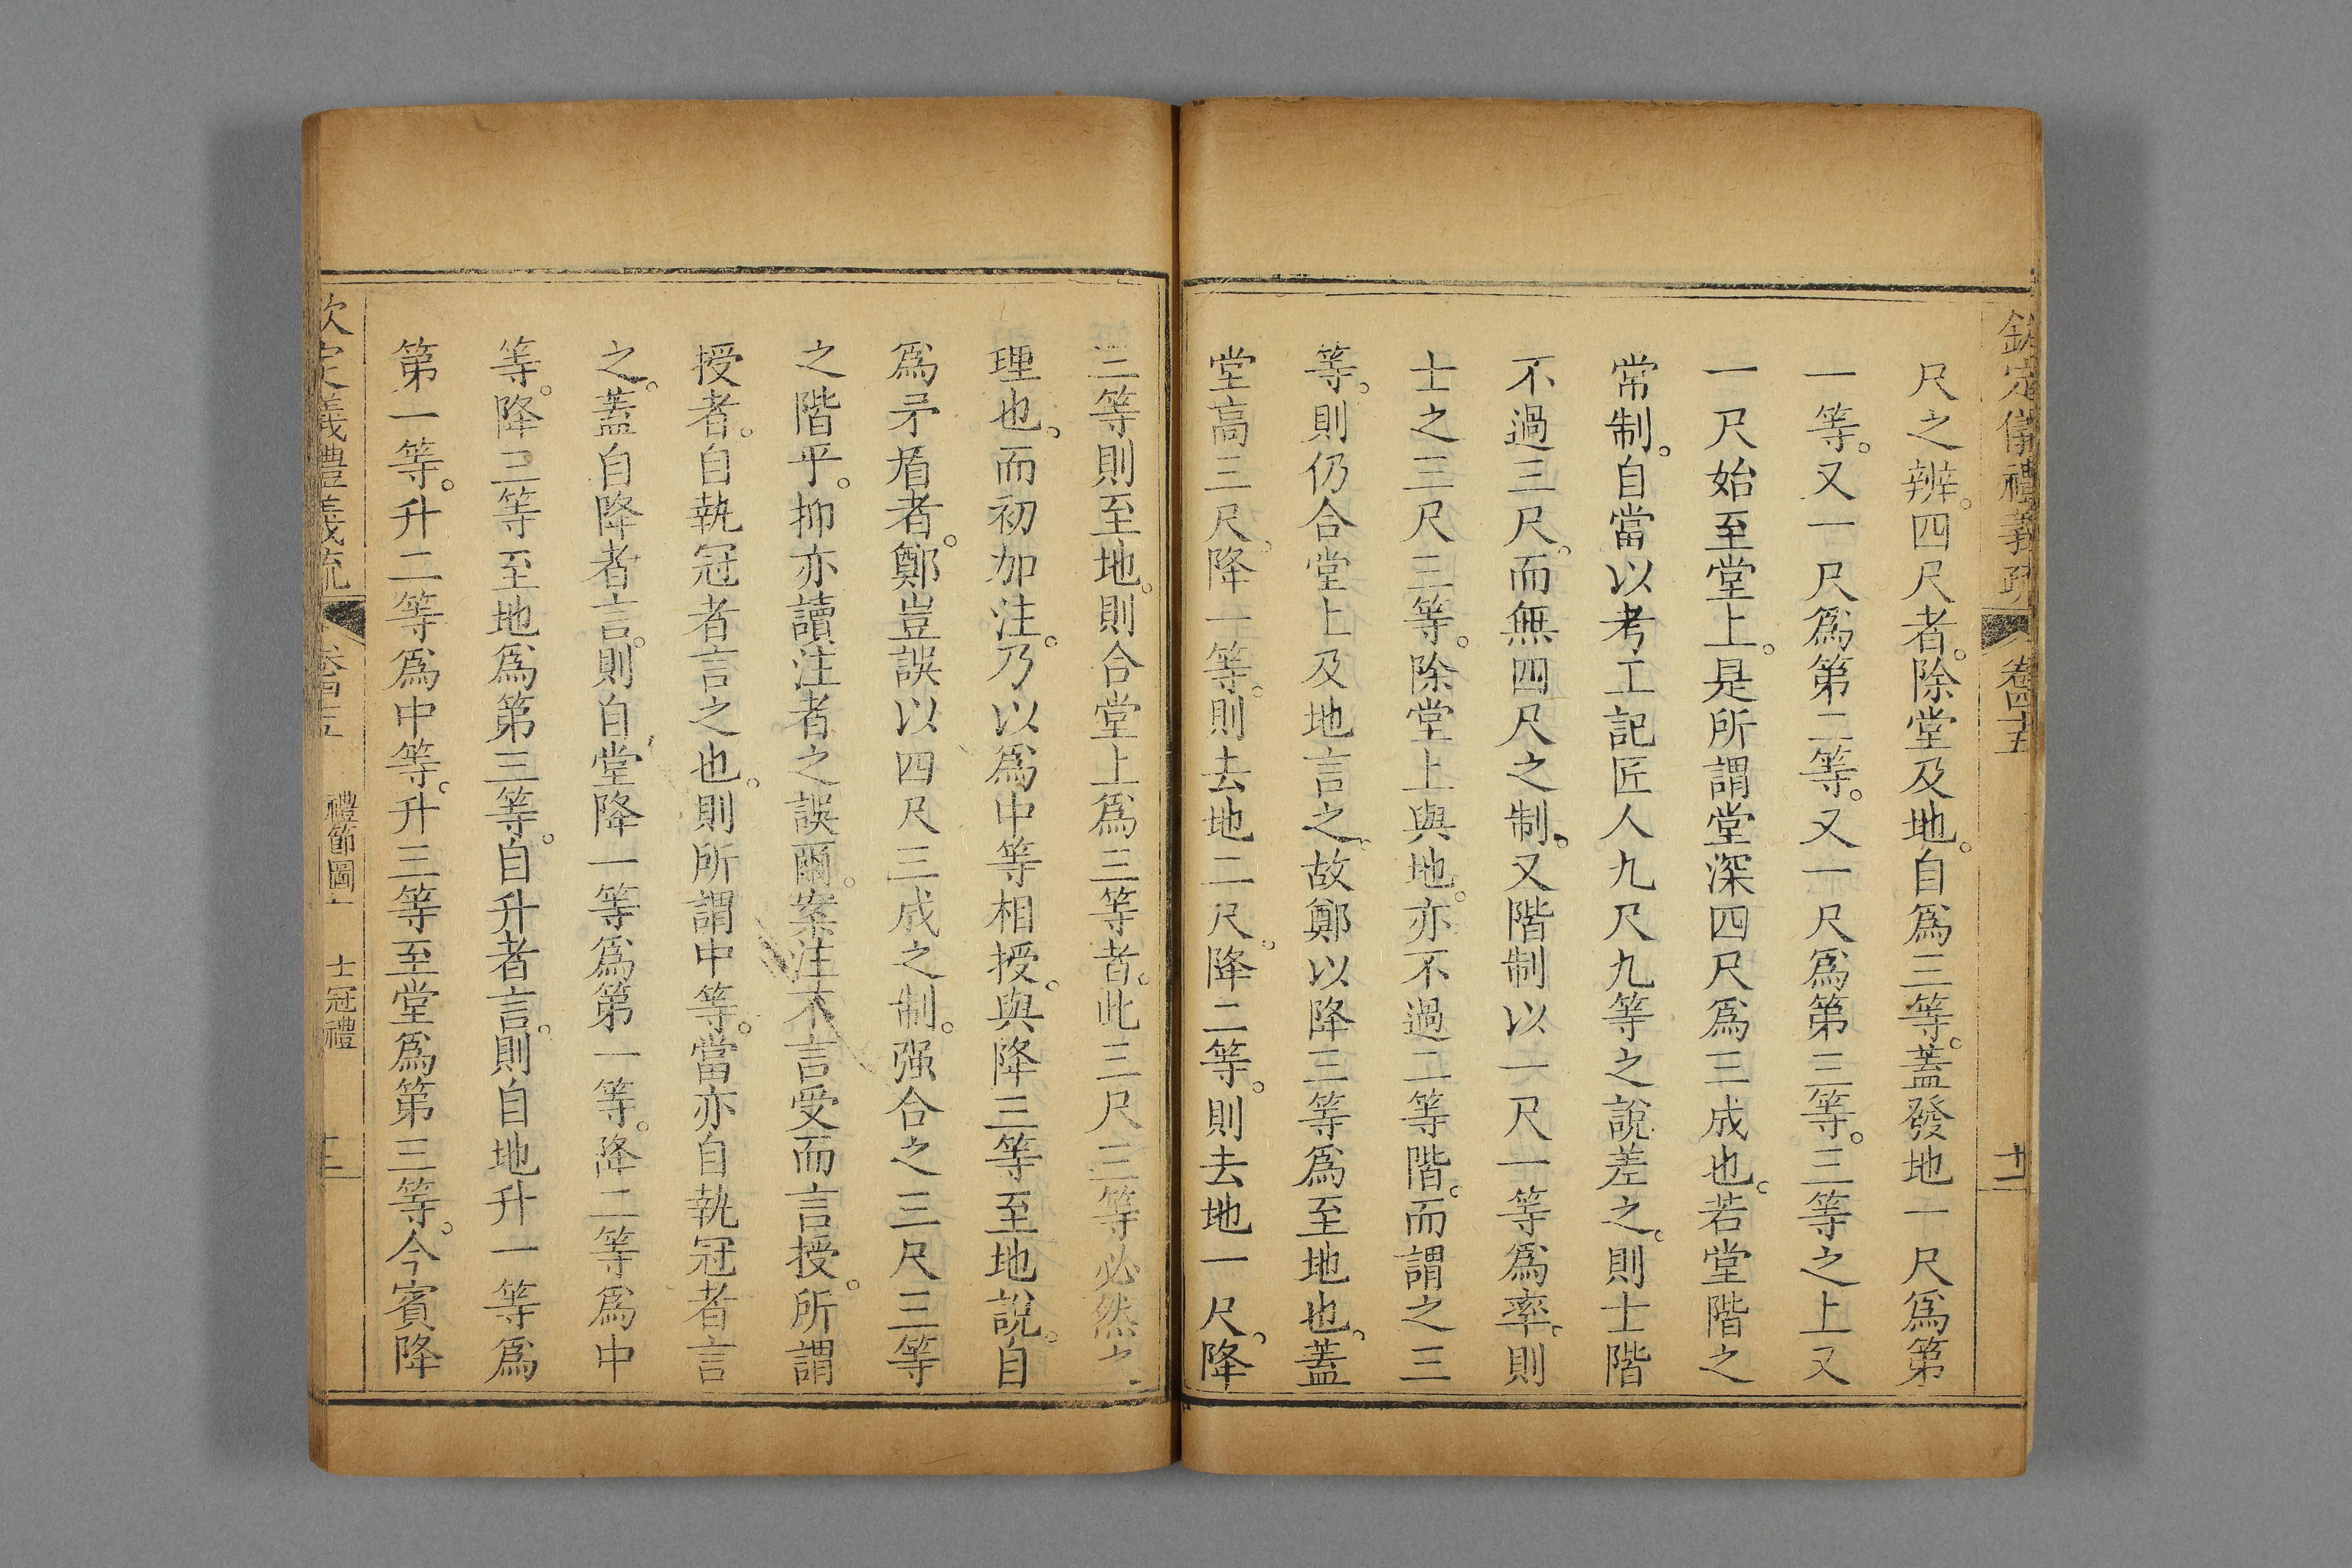 欽定儀禮義疏 卷四十五 十一
尺之辨。四尺者。除堂及地。自爲三等。蓋發地一尺爲第
一等。又一尺爲第二等。又一尺爲第三等。三等之上又
一尺始至堂上。是所謂堂深四尺爲三成也。若堂階之
常制。自當以考工記匠人九尺九等之說差之。則士階
不過三尺。而無四尺之制。又階制以一尺一等爲率。則
士之三尺三等。除堂上與地。亦不過二等階。而謂之三
等。則仍合堂上及地言之。故鄭以降三等爲至地也。蓋
堂高三尺。降一等。則去地二尺。降二等。則去地一尺。降
三等則至地。則合堂上爲三等者。此三尺三等必然之
理也。而初加注。乃以爲中等相授。與降三等至地說。自
爲矛盾者。鄭豈誤以四尺三成之制。强合之三尺三等
之階乎。抑亦讀注者之誤爾。案注不言受而言授。所謂
授者。自執冠者言之也。則所謂中等。當亦自執冠者言
之。蓋自降者言。則自堂降一等爲第一等。降二等爲中
等。降三等至地爲第三等。自升者言。則自地升一等爲
第一等。升二等爲中等。升三等至堂爲第三等。今賓降
欽定儀禮義疏 卷四十五 禮節圖一 士冠禮 十二